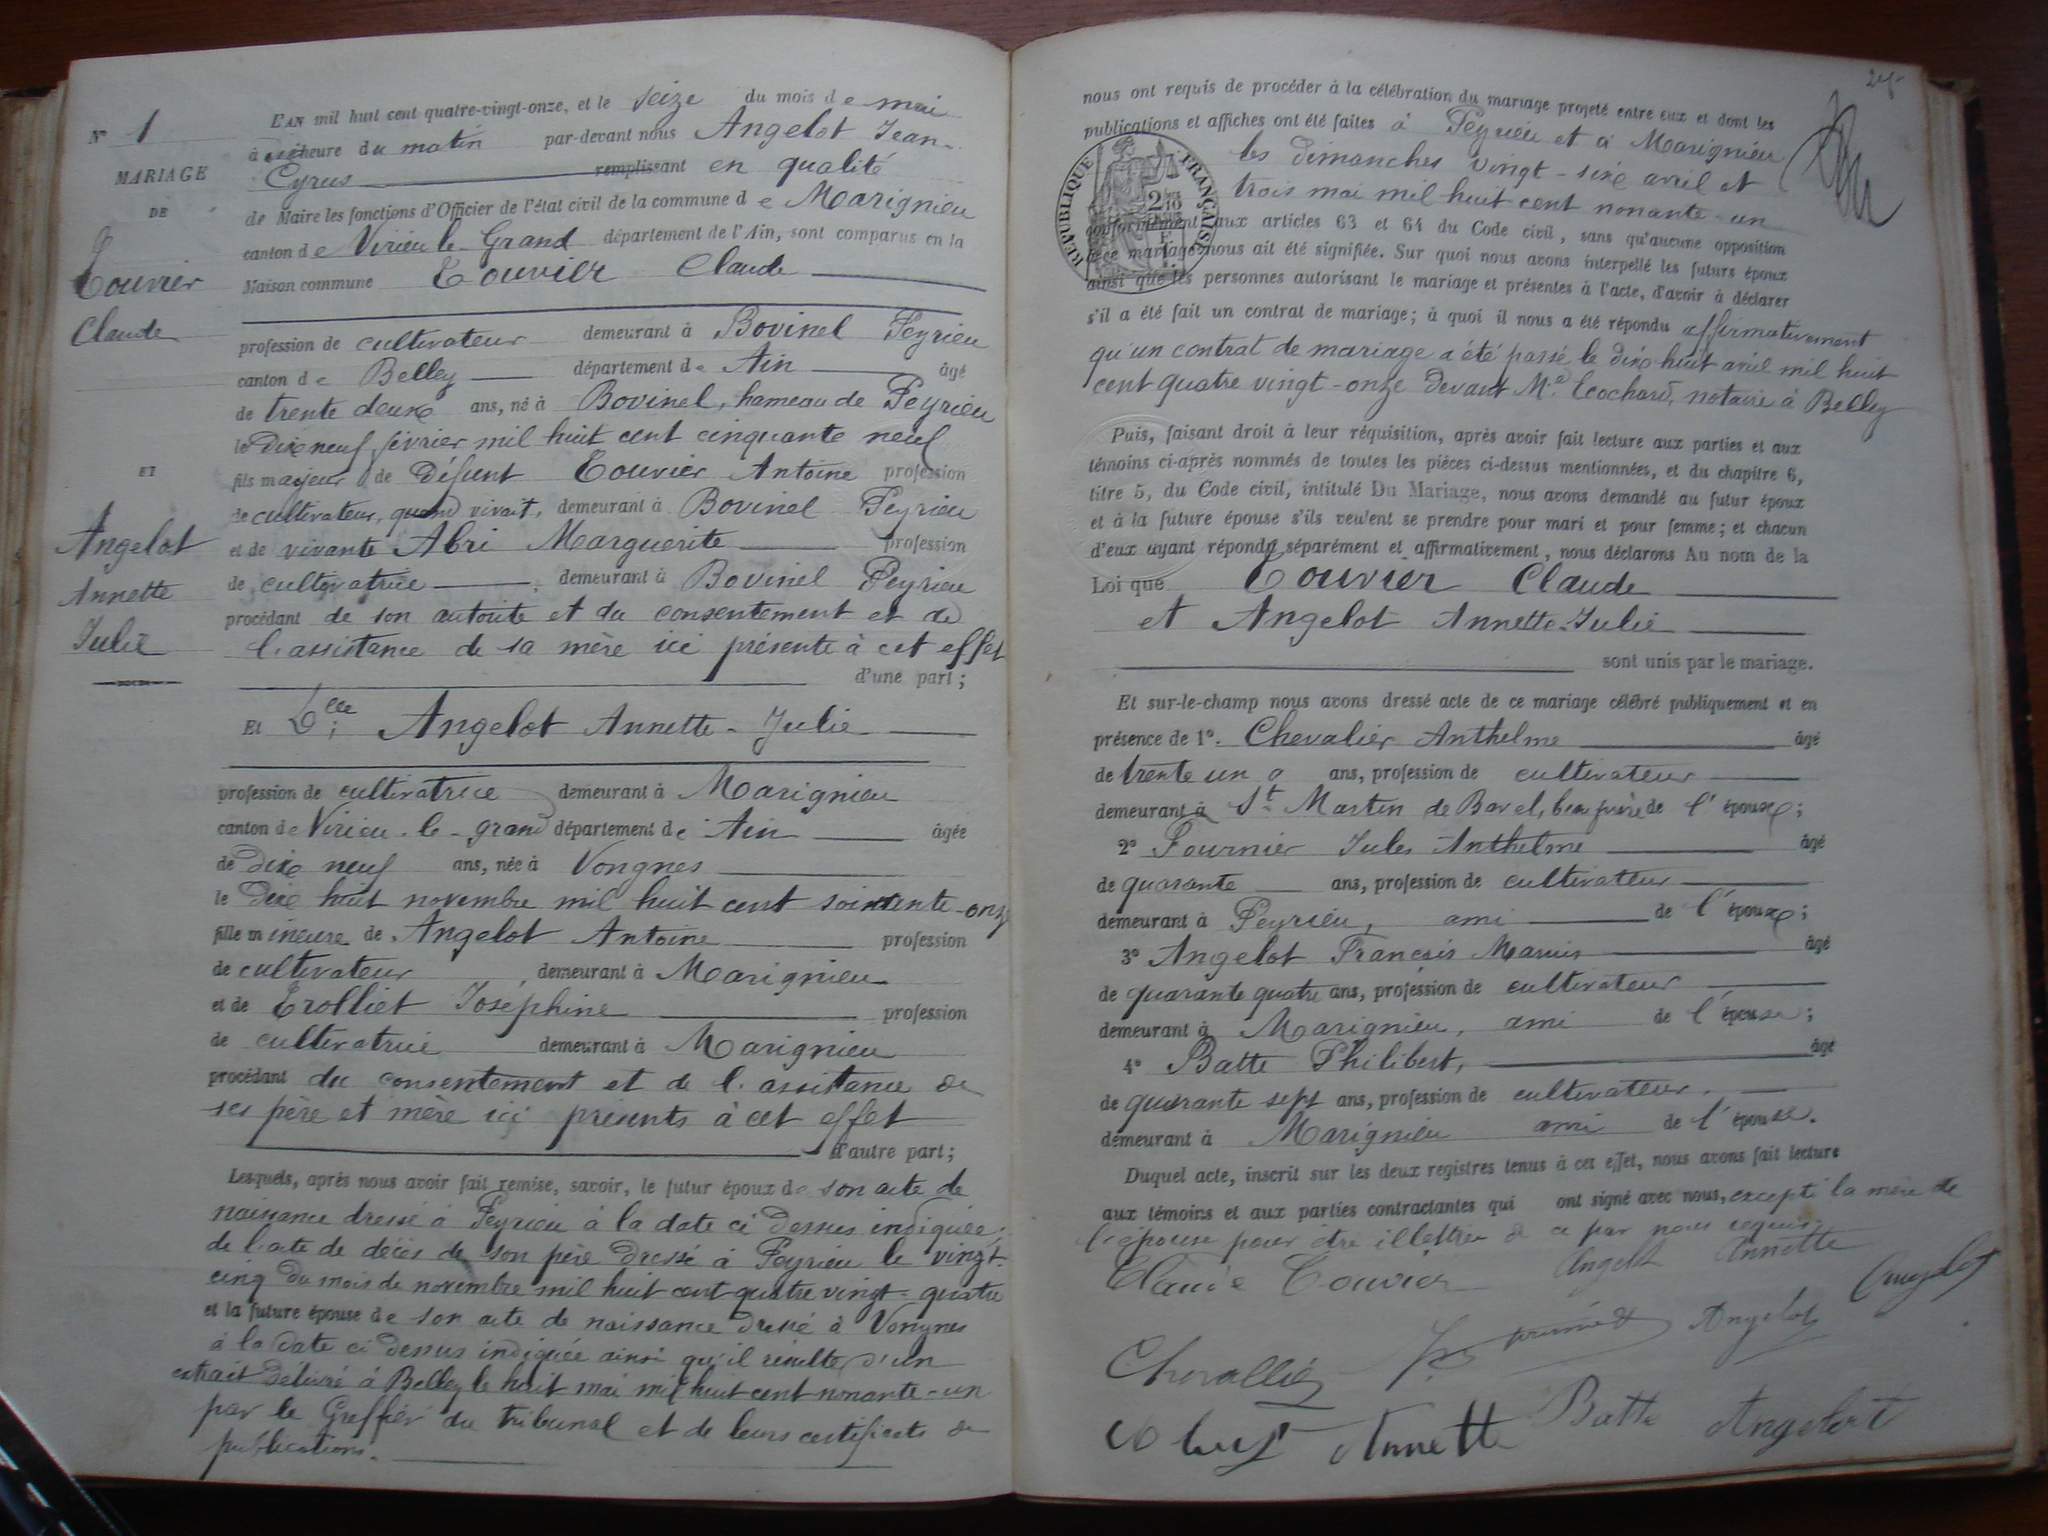 N° 1
MARIAGE
DE
Touvier
Claude
ET
Angelot
Annette
Julie
L'AN mil huit cent quatre-vingt-onze, et le seize du mois de mai
à heure du matin par-devant nous Angelot Jean-
Cyrus remplissant en qualité
de Maire les fonctions d'Officier de l'état civil de la commune de Marignieu
canton de Virieu le Grand département de l'Ain, sont comparus en la
Maison commune Touvier Claude
profession de cultivateur demeurant à Bovinel Peyrieu
canton de Belley département de Ain âgé
de trente deux ans, né à Bovinel, hameau de Peyrieu
le dix neuf février mil huit cent cinquante neuf
fils majeur de défunt Touvier Antoine profession
de cultivateur, quand vivait, demeurant à Bovinel Peyrieu
et de vivante Abri Marguerite profession
de cultivatrice demeurant à Bovinel Peyrieu
procédant de son autorité et du consentement et de
l'assistance de sa mère ici présente à cet effet
d'une part;
Et Dlle Angelot Annette-Julie
profession de cultivatrice demeurant à Marignieu
canton de Virieu-le-grand département de Ain âgée
de dix neuf ans, née à Vongnes
le dix huit novembre mil huit cent soixante-onze
fille mineure de Angelot Antoine profession
de cultivateur demeurant à Marignieu
et de Trolliet Joséphine profession
de cultivatrice demeurant à Marignieu
procédant du consentement et de l'assistance de
ses père et mère ici présents à cet effet
d'autre part;
Lesquels, après nous avoir fait remise, savoir, le futur époux de son acte de
naissance dressé à Peyrieu à la date ci dessus indiquée,
de l'acte de décès de son père dressé à Peyrieu le vingt-
cinq du mois de novembre mil huit cent quatre vingt-quatre
et la future épouse de son acte de naissance dressé à Vongnes
à la date ci dessus indiquée ainsi qu'il résulte d'un
extrait délivré à Belley le huit mai mil huit cent nonante-un
par le Greffier du tribunal et de leurs certificats de
publications.
nous ont requis de procéder à la célébration du mariage projeté entre eux et dont les
publications et affiches ont été faites à Peyrieu et à Marignieu
les dimanches vingt-six avril et
trois mai mil huit cent nonante-un
conformément aux articles 63 et 64 du Code civil, sans qu'aucune opposition
à ce mariage nous ait été signifiée. Sur quoi nous avons interpellé les futurs époux
ainsi que les personnes autorisant le mariage et présentes à l'acte, d'avoir à déclarer
s'il a été fait un contrat de mariage; à quoi il nous a été répondu affirmativement
qu'un contrat de mariage a été passé le dix-huit avril mil huit
cent quatre vingt-onze devant Me Ecochard, notaire à Belley
RÉPUBLIQUE FRANÇAISE
2 10
Puis, faisant droit à leur réquisition, après avoir fait lecture aux parties et aux
témoins ci-après nommés de toutes les pièces ci-dessus mentionnées, et du chapitre 6,
titre 5, du Code civil, intitulé Du Mariage, nous avons demandé au futur époux
et à la future épouse s'ils veulent se prendre pour mari et pour femme; et chacun
d'eux ayant répondu séparément et affirmativement, nous déclarons Au nom de la
Loi que Touvier Claude
et Angelot Annette-Julie
sont unis par le mariage.
Et sur-le-champ nous avons dressé acte de ce mariage célébré publiquement et en
présence de 1°. Chevalier Anthelme âgé
de trente un ans, profession de cultivateur
demeurant à St Martin de Bavel, beau frère de l'époux;
2° Fournier Jules Anthelme âgé
de quarante ans, profession de cultivateur
demeurant à Peyrieu, ami de l'époux;
3° Angelot François Marius âgé
de quarante quatre ans, profession de cultivateur
demeurant à Marignieu, ami de l'épouse;
4° Batte Philibert, âgé
de quarante sept ans, profession de cultivateur
demeurant à Marignieu ami de l'épouse.
Duquel acte, inscrit sur les deux registres tenus à cet effet, nous avons fait lecture
aux témoins et aux parties contractantes qui ont signé avec nous, excepté la mère de
l'épouse pour être illettrée de ce par nous requise
Claude Touvier Angelot Annette
Angelot
Chevallier Angelot
Annette Batte Angelot